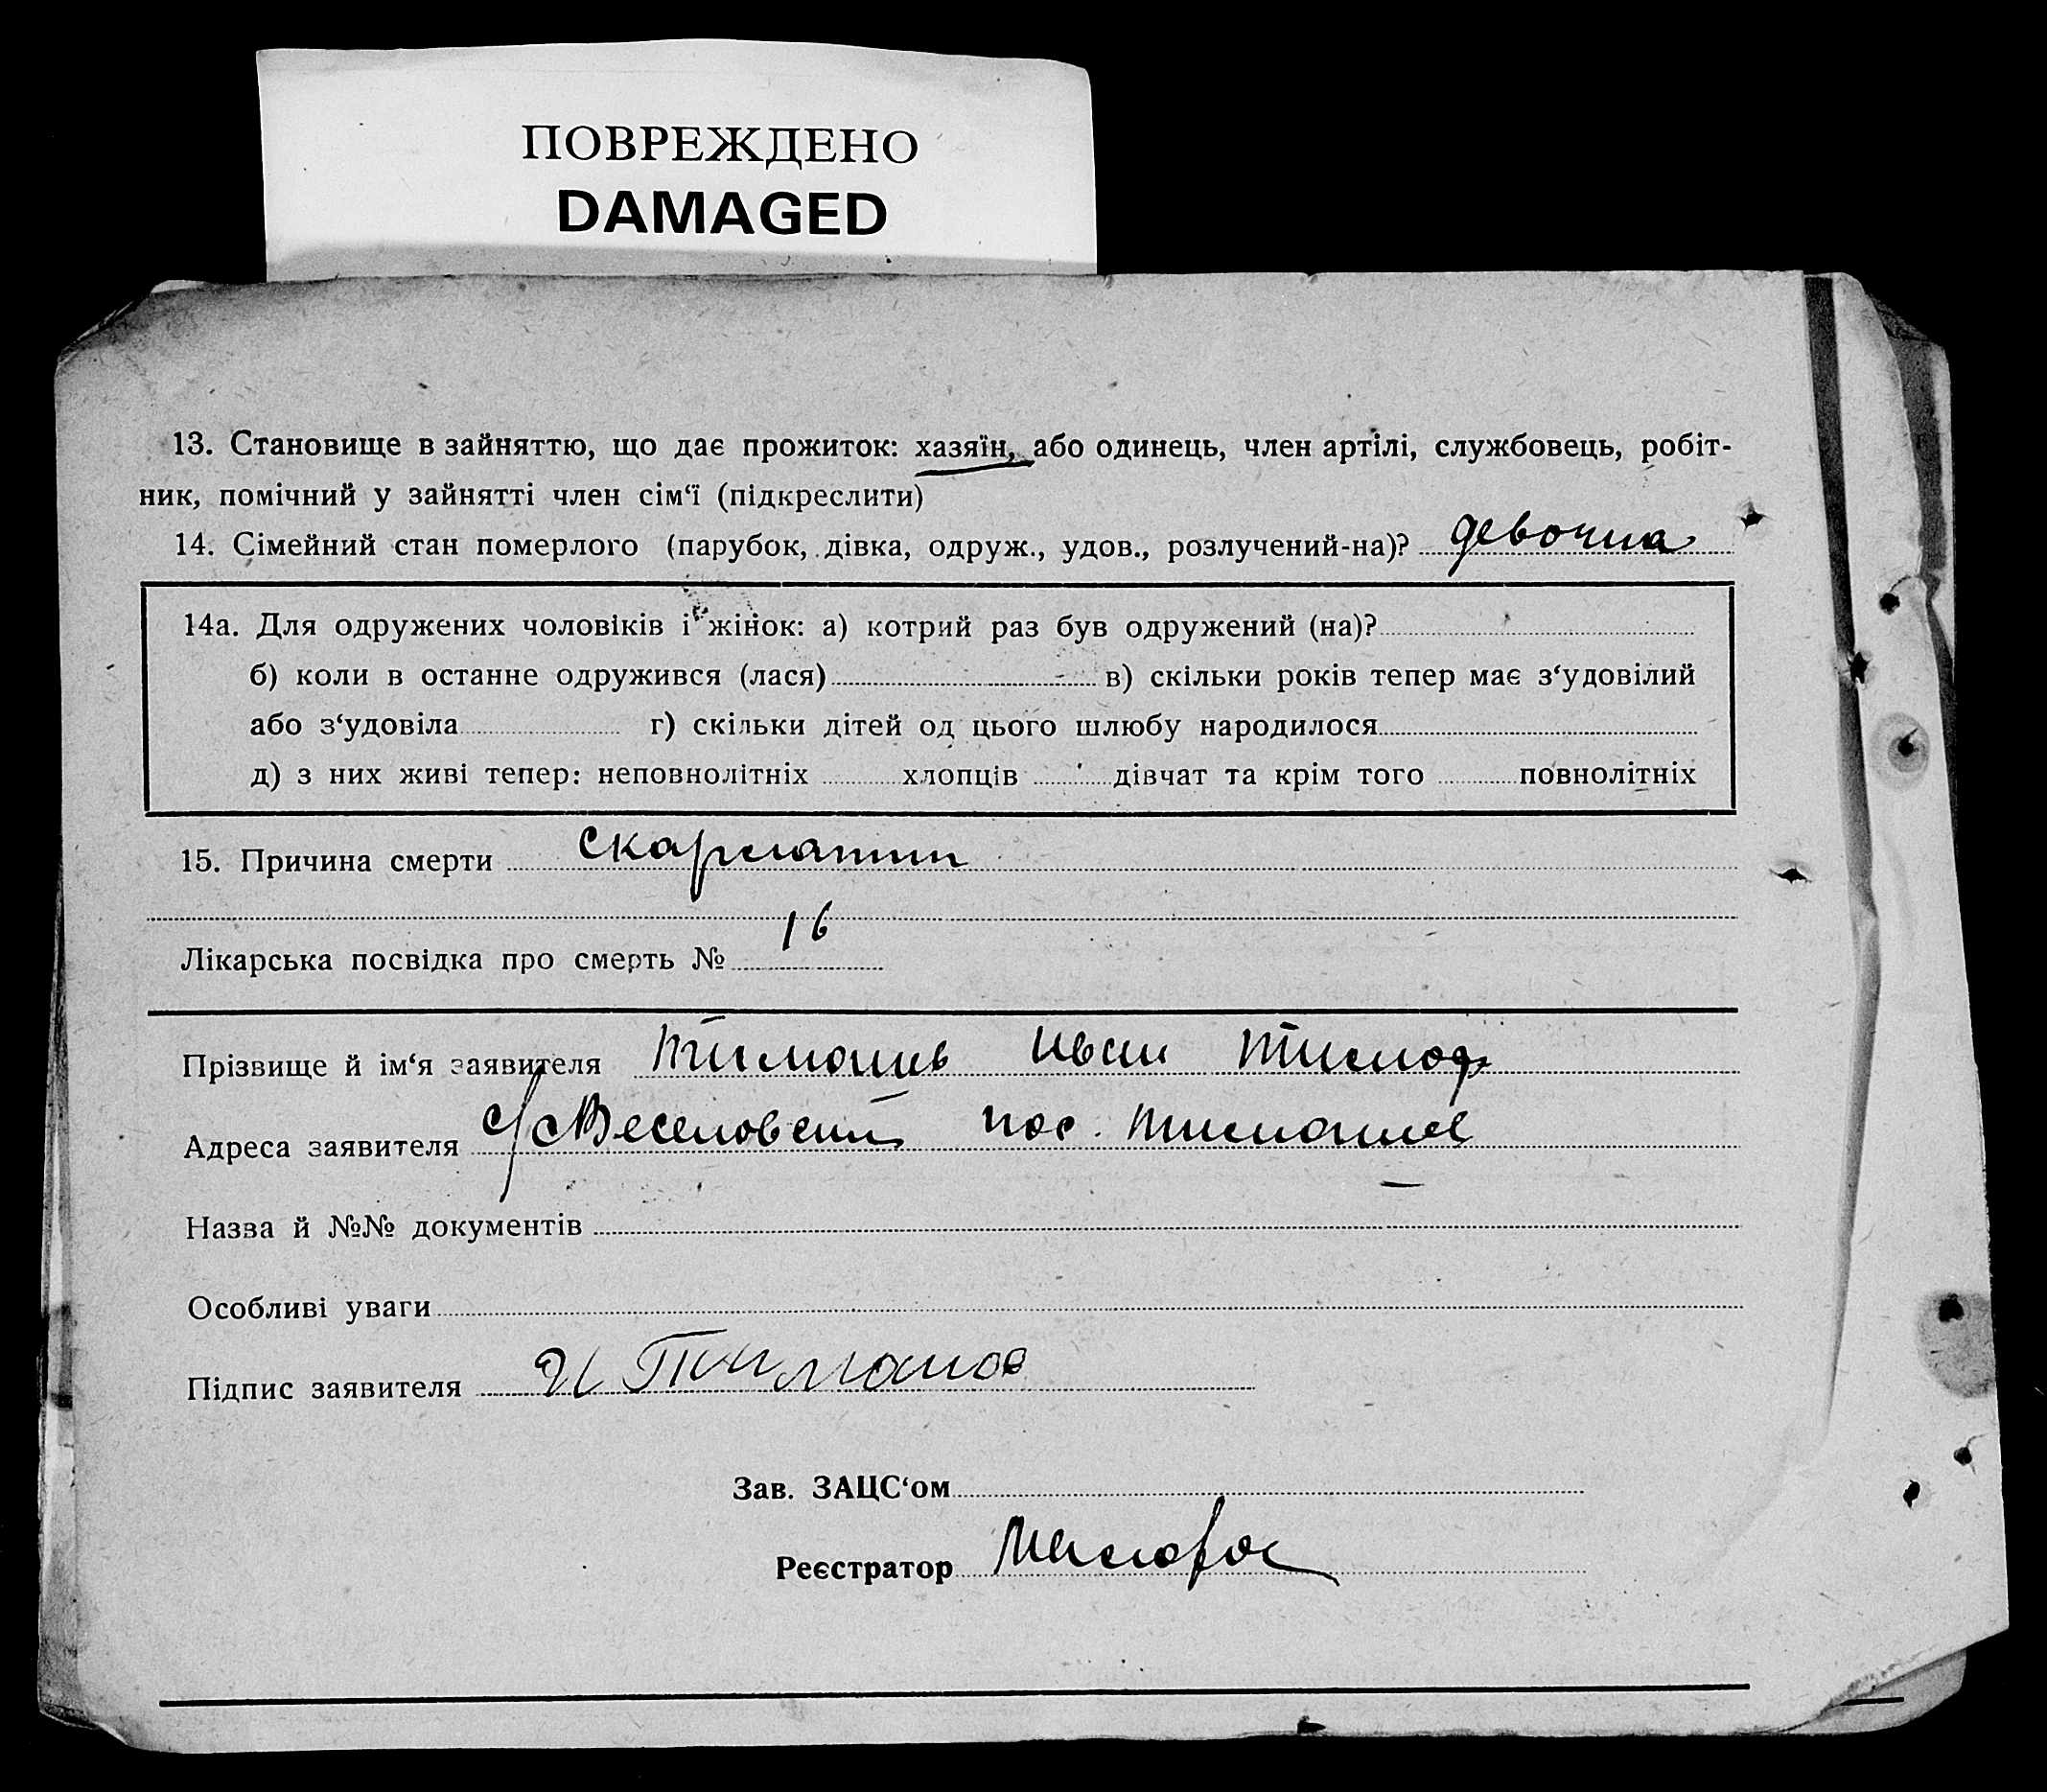 ПОВРЕЖДЕНО
DAMAGED
13. Становище в зайняттю, що дає прожиток: хазяїн, або одинець, член артілі, службовець, робіт-
ник, помічний у зайнятті член сім‘ї (підкреслити)
14. Сімейний стан померлого (парубок, дівка, одруж., удов., розлучений-на)? девочка
14а. Для одружених чоловіків і жінок: а) котрий раз був одружений (на)?
б) коли в останнє одружився (лася) в) скільки років тепер має з‘удовілий
або з‘удовіла г) скільки дітей од цього шлюбу народилося
д) з них живі тепер: неповнолітніх хлопців дівчат та крім того повнолітніх
15. Причина смерти скарлатин
Лікарська посвідка про смерть № 16
Прізвище й ім‘я заявителя Тимошив Иван Тимоф
Адреса заявителя с/с Веселовский пос.
Назва й №№ документів
Особливі уваги
Підпис заявителя И
Зав. ЗАЦС‘ом
Реєстратор